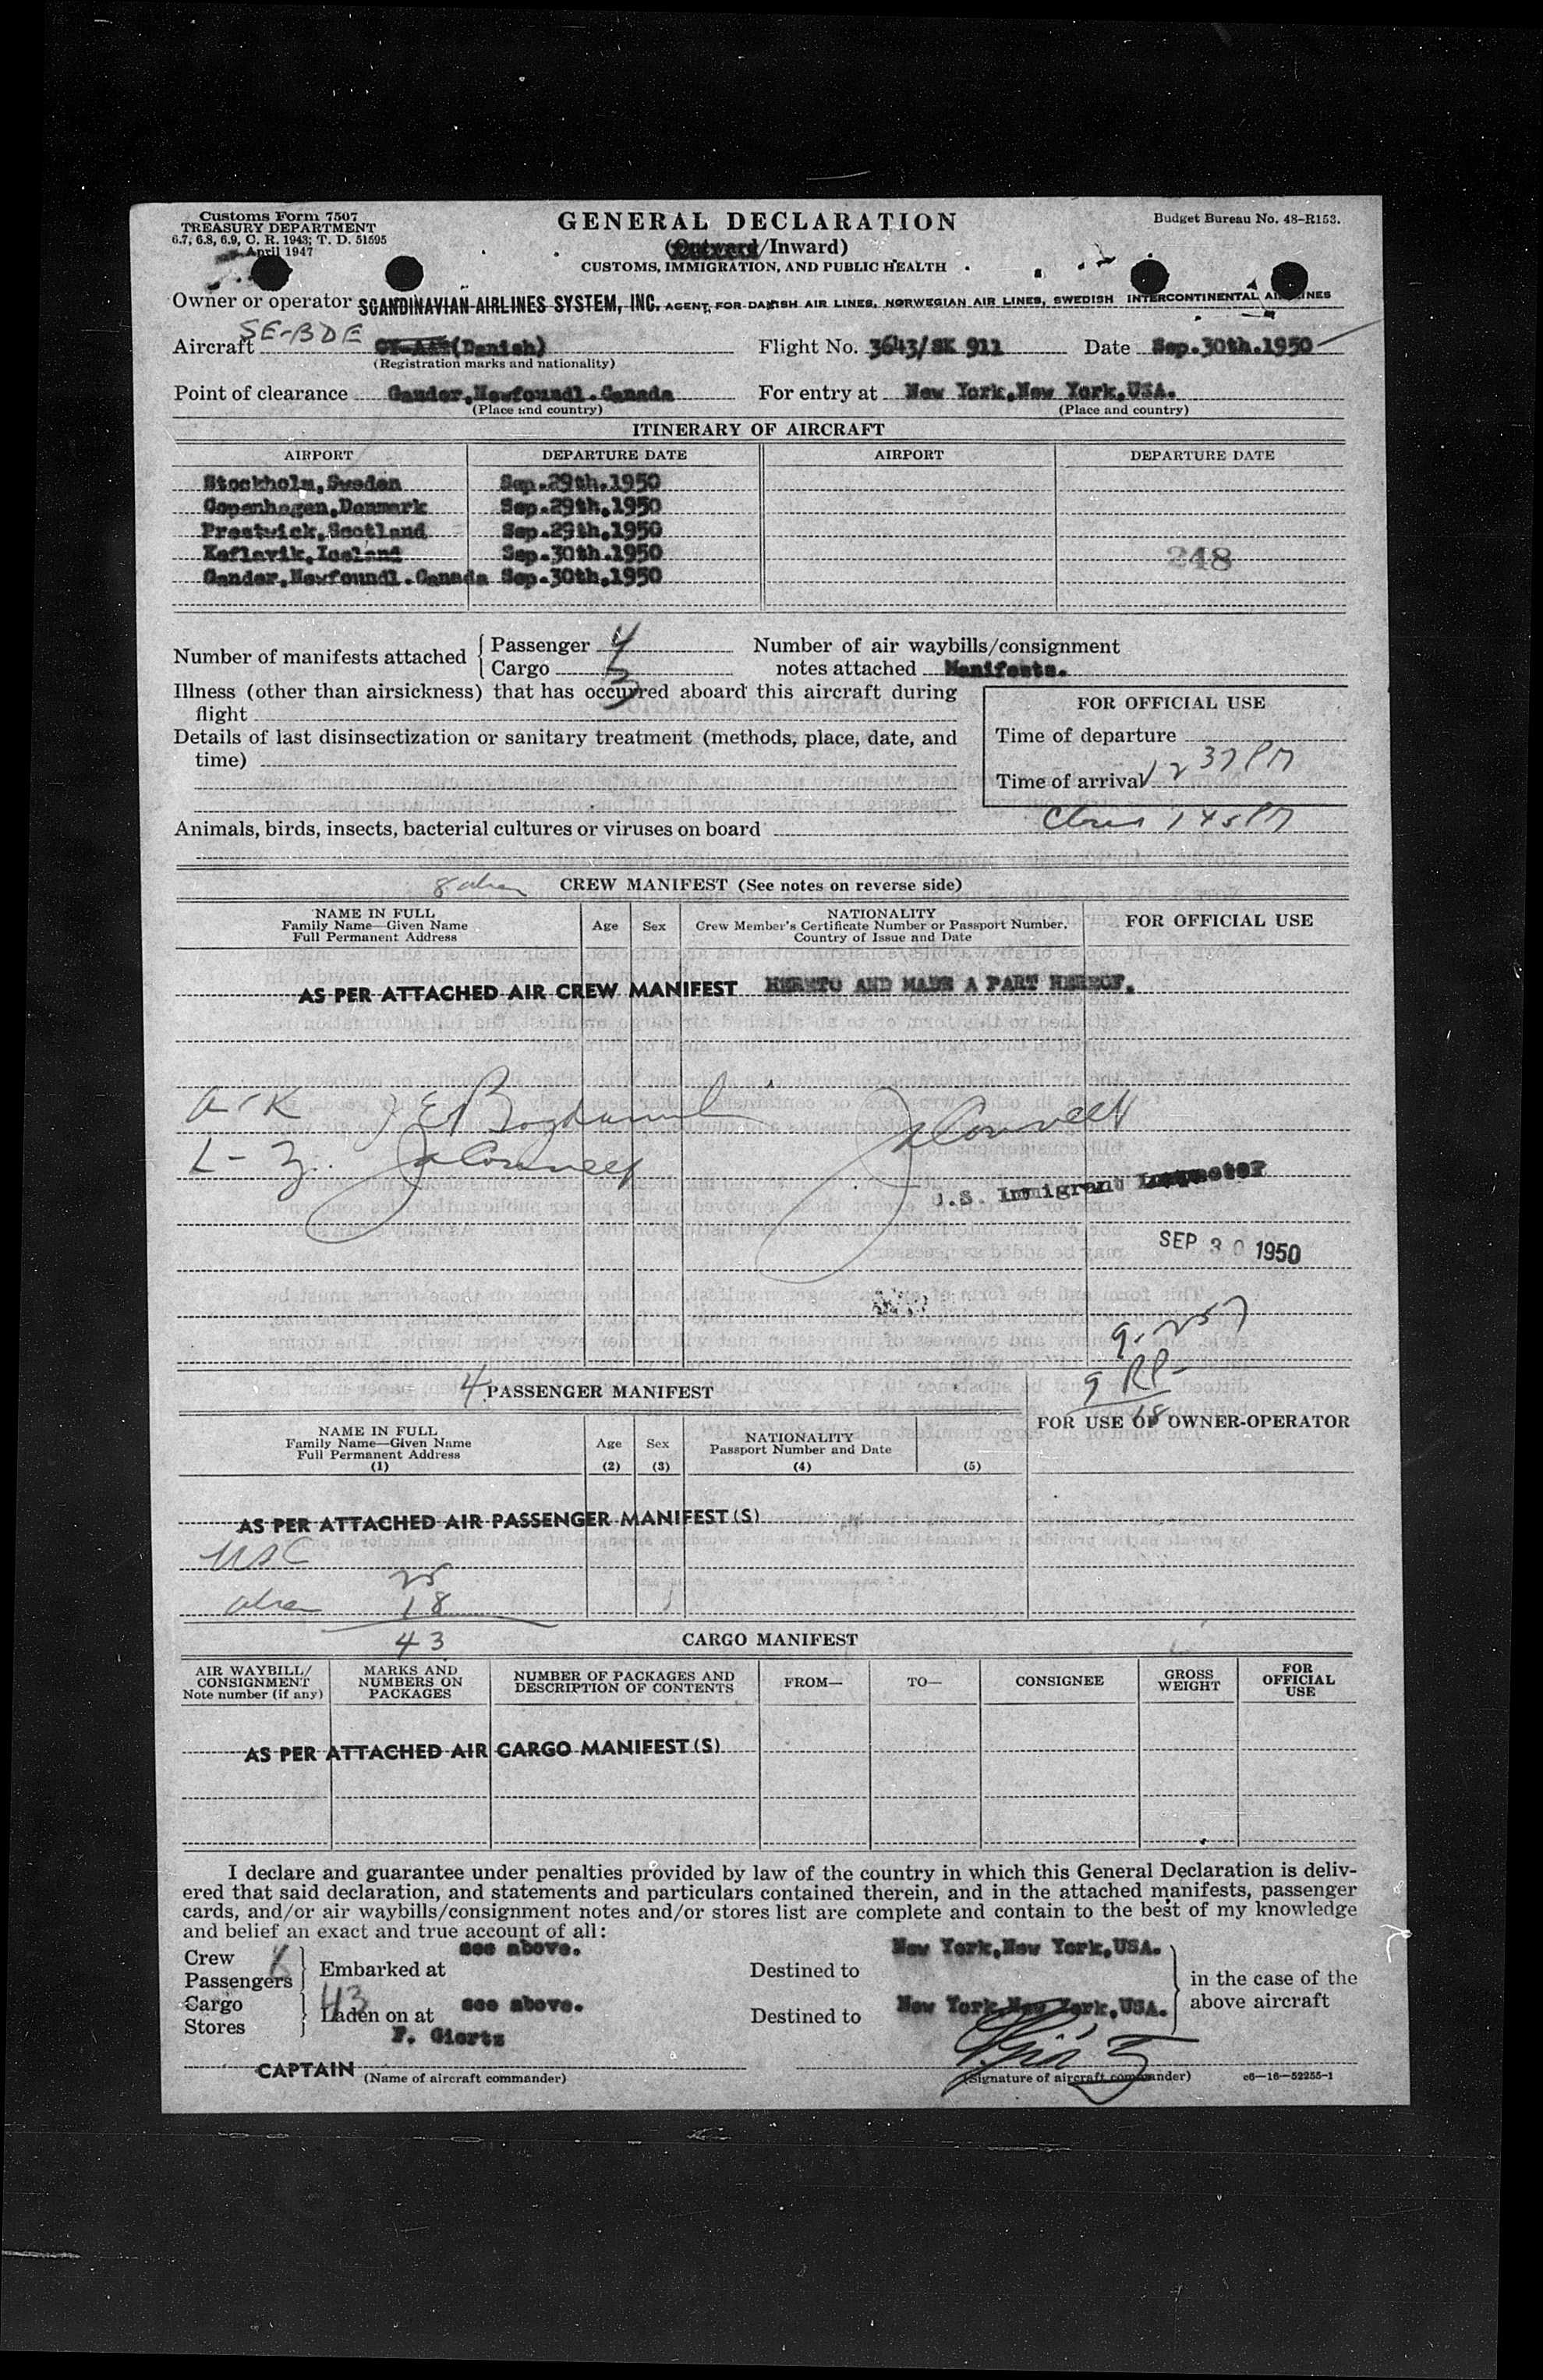 Customs Form 7507
TREASURY DEPARTMENT
6.7, 6.8, 6.9, C. R. 1943; T. D. 51595
April 1947
GENERAL DECLARATION
(Outward/Inward)
CUSTOMS, IMMIGRATION, AND PUBLIC HEALTH
Budget Bureau No. 48-R153.
Owner or operator SCANDINAVIAN AIRLINES SYSTEM, INC. AGENT FOR DANISH AIR LINES, NORWEGIAN AIR LINES, SWEDISH INTERCONTINENTAL AIRLINES
Aircraft SE-BDE (Danish) Flight No. 3643/SK 911 Date Sep.30th.1950
(Registration marks and nationality)
Point of clearance Gander,Newfoundl.Canada For entry at New York,New York,USA.
(Place and country) (Place and country)
ITINERARY OF AIRCRAFT
AIRPORT DEPARTURE DATE AIRPORT DEPARTURE DATE
Stockholm,Sweden Sep.29th.1950
Copenhagen,Denmark Sep.29th,1950
Prestwick,Scotland Sep.29th,1950
Keflavik,Iceland Sep.30th.1950
248
Gander,Newfoundl.Canada Sep.30th,1950
Number of manifests attached { Passenger 4
Cargo 3
Number of air waybills/consignment
notes attached Manifests.
Illness (other than airsickness) that has occurred aboard this aircraft during
flight
Details of last disinsectization or sanitary treatment (methods, place, date, and
time)
FOR OFFICIAL USE
Time of departure
Time of arrival 12 37 PM
145 PM
Animals, birds, insects, bacterial cultures or viruses on board
8 CREW MANIFEST (See notes on reverse side)
NAME IN FULL
Family Name—Given Name
Full Permanent Address
Age Sex
NATIONALITY
Crew Member's Certificate Number or Passport Number,
Country of Issue and Date
FOR OFFICIAL USE
AS PER ATTACHED AIR CREW MANIFEST HERETO AND MADE A PART HEREOF.
A-K
L-Z
U.S. Immigrant Inspector
SEP 30 1950
9-257
9 RP-
18
4 PASSENGER MANIFEST
FOR USE OF OWNER-OPERATOR
NAME IN FULL
Family Name—Given Name
Full Permanent Address
(1)
Age
(2)
Sex
(3)
NATIONALITY
Passport Number and Date
(4) (5)
AS PER ATTACHED AIR PASSENGER MANIFEST(S)
USC 25
18
43
CARGO MANIFEST
AIR WAYBILL/
CONSIGNMENT
Note number (if any)
MARKS AND
NUMBERS ON
PACKAGES
NUMBER OF PACKAGES AND
DESCRIPTION OF CONTENTS
FROM—
TO—
CONSIGNEE
GROSS
WEIGHT
FOR
OFFICIAL
USE
AS PER ATTACHED AIR CARGO MANIFEST(S)
I declare and guarantee under penalties provided by law of the country in which this General Declaration is deliv-
ered that said declaration, and statements and particulars contained therein, and in the attached manifests, passenger
cards, and/or air waybills/consignment notes and/or stores list are complete and contain to the best of my knowledge
and belief an exact and true account of all:
Crew
Passengers } Embarked at see above. Destined to New York,New York,USA.
Cargo
Stores } 43 Laden on at see above. Destined to New York,New York,USA.
in the case of the
above aircraft
F. Giertz
CAPTAIN (Name of aircraft commander)
(Signature of aircraft commander)
c6—16—52255-1